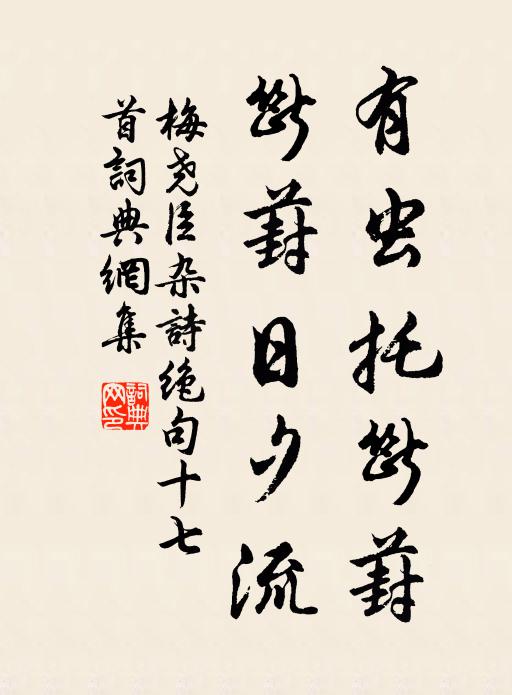 有虫托断葑
断葑日夕流
梅尧臣杂詩绝句十七
首詞典網集
詞典网印